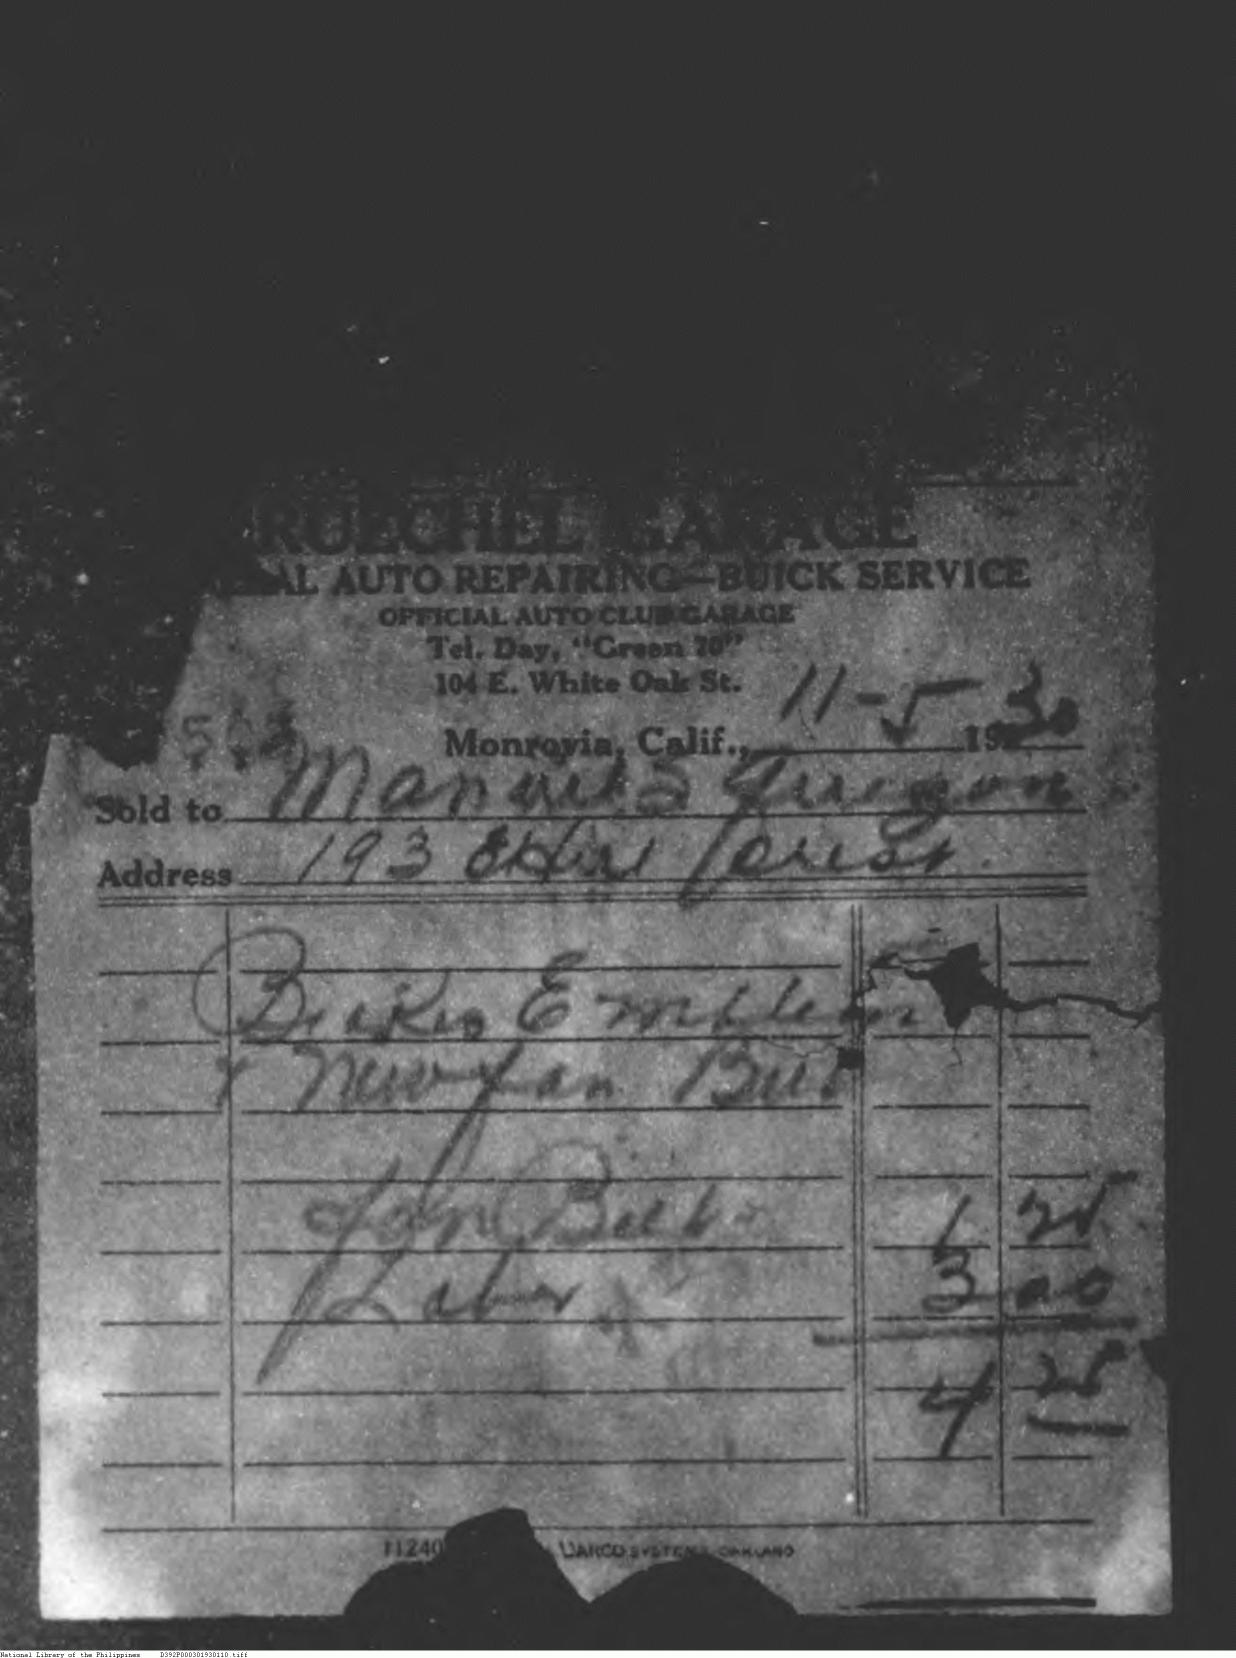 RUECHEL GARAGE
AL AUTO REPAIRING—BUICK SERVICE
OFFICIAL AUTO CLUB GARAGE
Tel. Day, "Green 70"
104 E. White Oak St.
Monrovia, Calif., 11-5 1930
Sold to Manuel S
Address 193
Emblem
New fan Belt
Fan Belt 1 25
Labor 3 00
4 25
11240 UARCO SYSTEMS, OAKLAND
National Library of the Philippines D392P000301930110.tiff